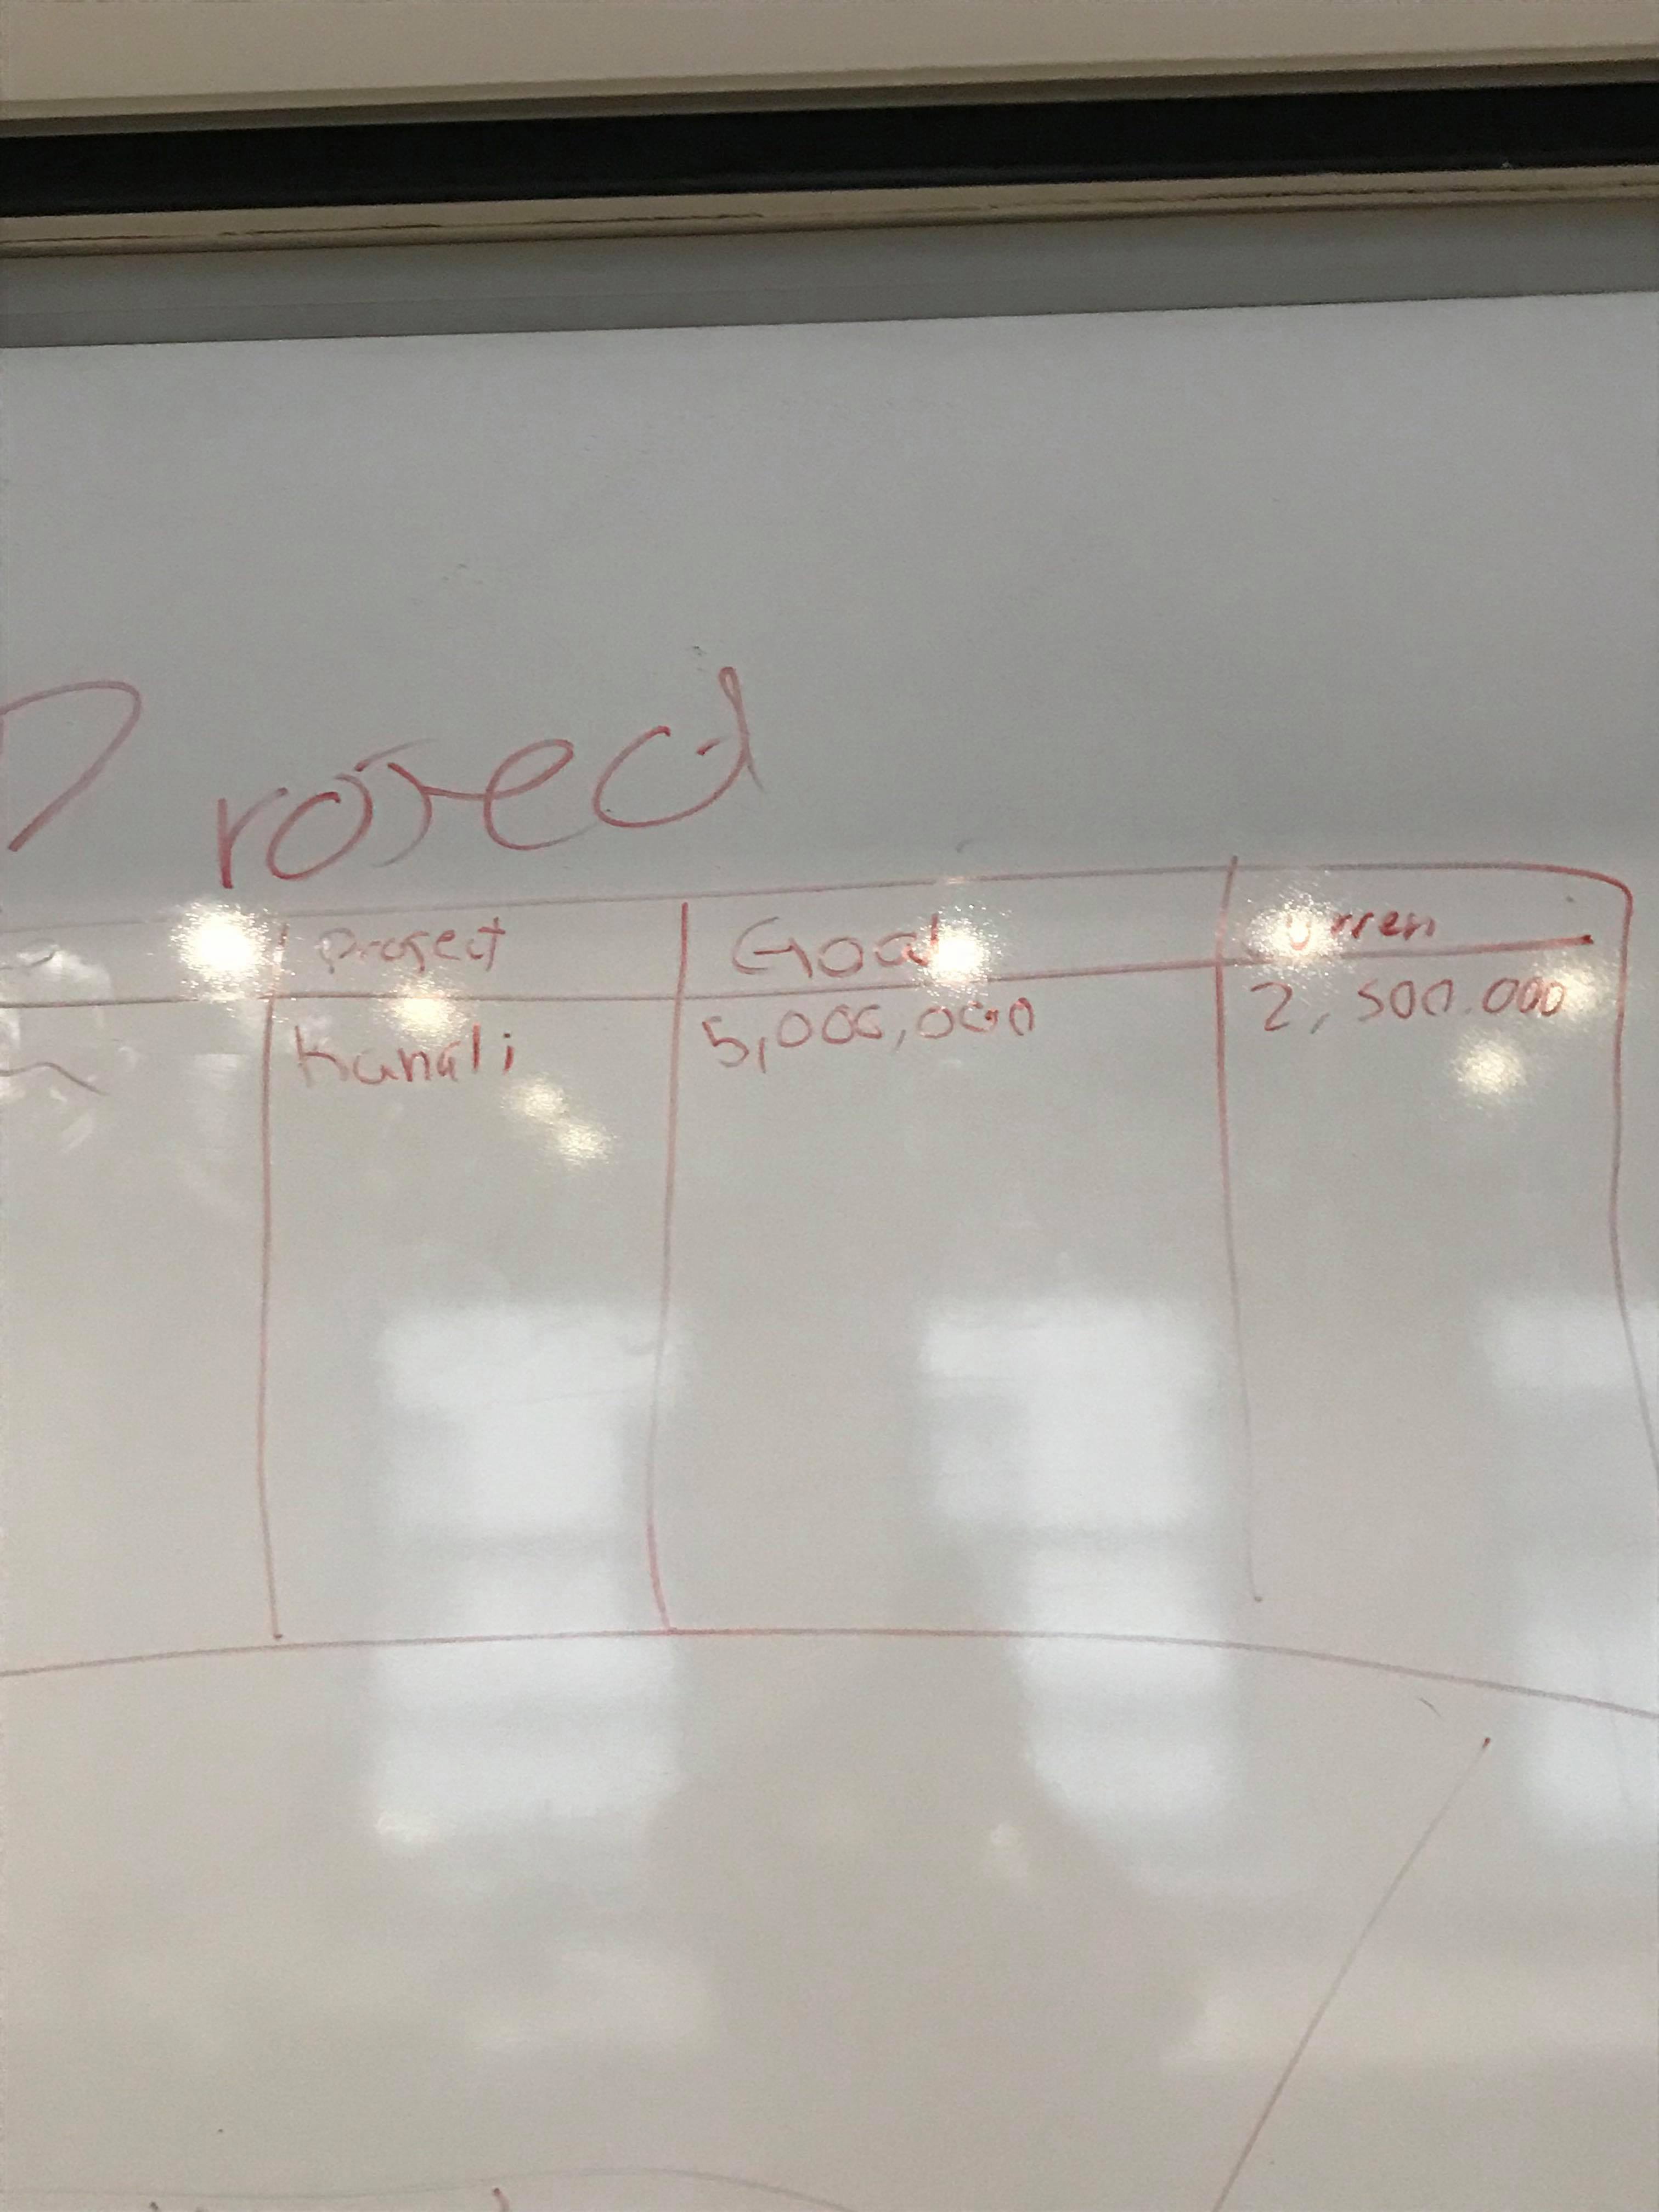 Project
Project Goal Curren
Kanali 5,000,000 2,500.000